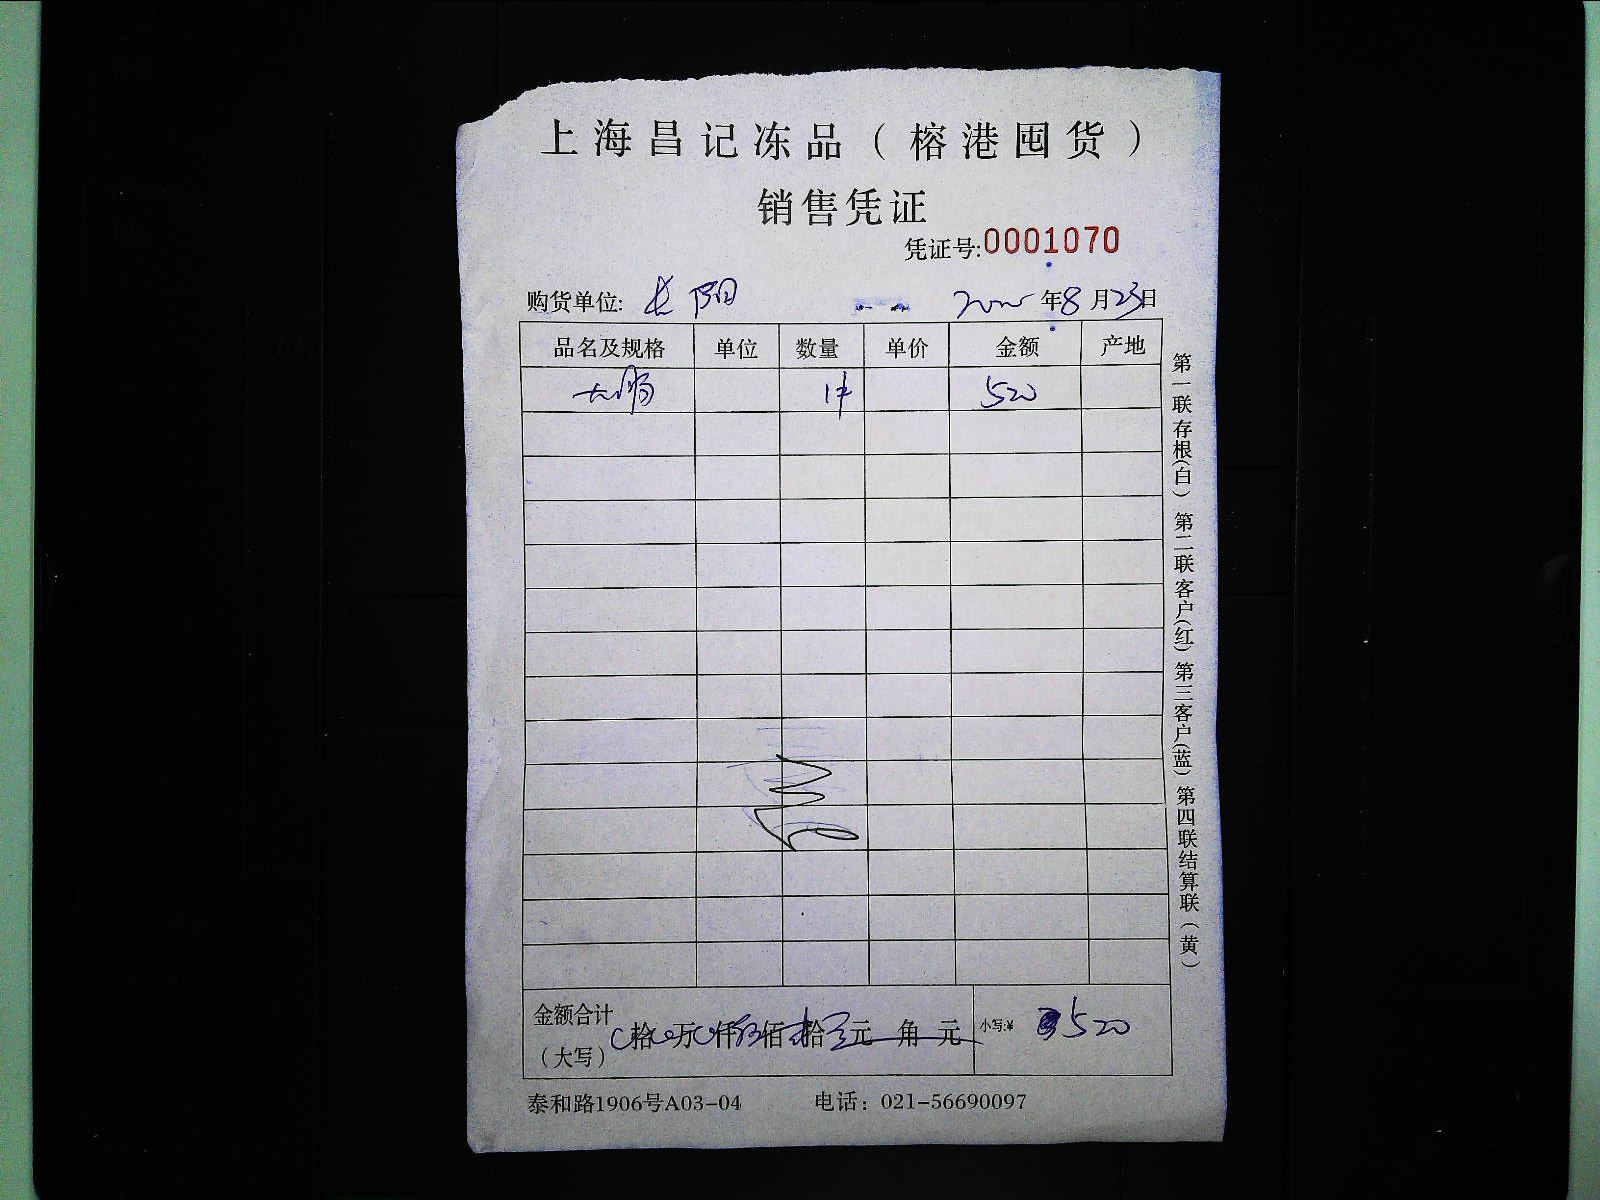 上海昌记冻品（榕港囤货）
销售凭证
凭证号:0001070
购货单位: 长阳 年8月23日
品名及规格 单位 数量 单价 金额 产地
大肠 1件 520
金额合计（大写） 拾 万 仟 伍佰 拾 元 角 元 小写:¥ 520
泰和路1906号A03-04 电话：021-56690097
第一联存根(白) 第二联客户(红) 第三客户(蓝) 第四联结算联(黄)